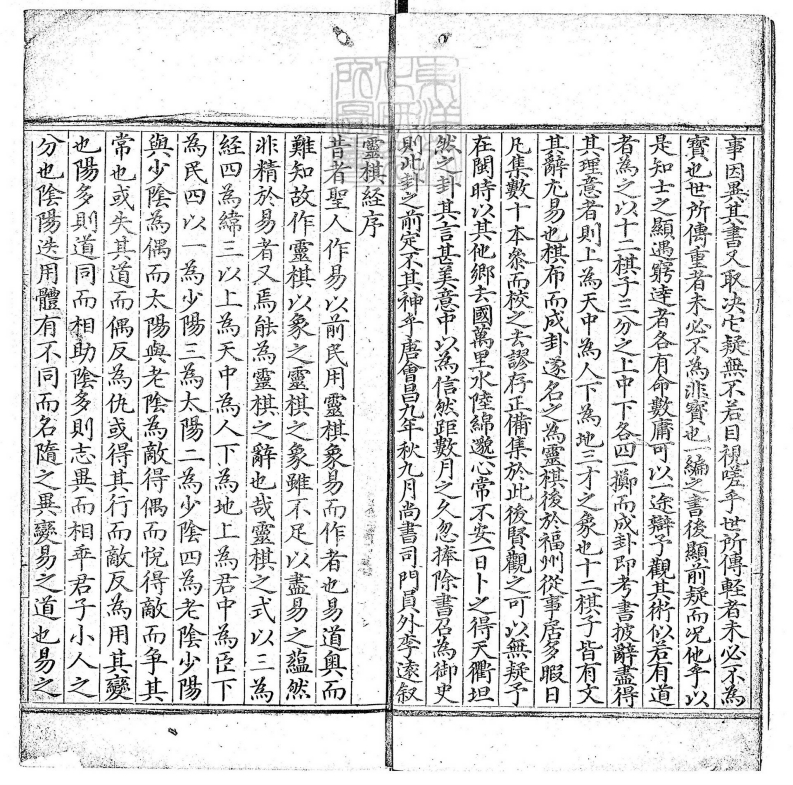 事因異其書又取决它疑無不若目視嗟乎世所傳輕者未必不為
寳也世所傳重者未必不為非寳也一編之書後顯前疑而况他乎以
是知士之顯遇窮達者各有命數庸可以一途辯予觀其術似若有道
者為之以十二棋子三分之上中下各四一擲而成卦即考書披辭盡得
其理意者則上為天中為人下為地三才之象也十二棋子皆有文
其辭尤易也棋布而成卦遂名之為靈棋後於福州從事居多暇日
凡集數十本叅而校之去謬存正備集於此後賢觀之可以無疑予
在閩時以其他鄉去國萬里水陸綿邈心常不安一日卜之得天衢坦
然之卦其言甚美意中以為信然距數月之久忽捧除書召為御史
則此卦之前定不其神乎唐會昌九年秋九月尚書司門員外李遠叙
靈棋經序
昔者聖人作易以前民用靈棋象易而作者也易道奥而
難知故作靈棋以象之靈棋之象雖不足以盡易之藴然
非精於易者又焉能為靈棋之辭也哉靈棋之式以三為
經四為緯三以上為天中為人下為地上為君中為臣下
為民四以一為少陽三為太陽二為少陰四為老陰少陽
與少陰為偶而太陽與老陰為敵得偶而悅得敵而爭其
常也或失其道而偶反為仇或得其行而敵反為用其變
也陽多則道同而相助陰多則志異而相乖君子小人之
分也陰陽迭用體有不同而名隨之異變易之道也易之